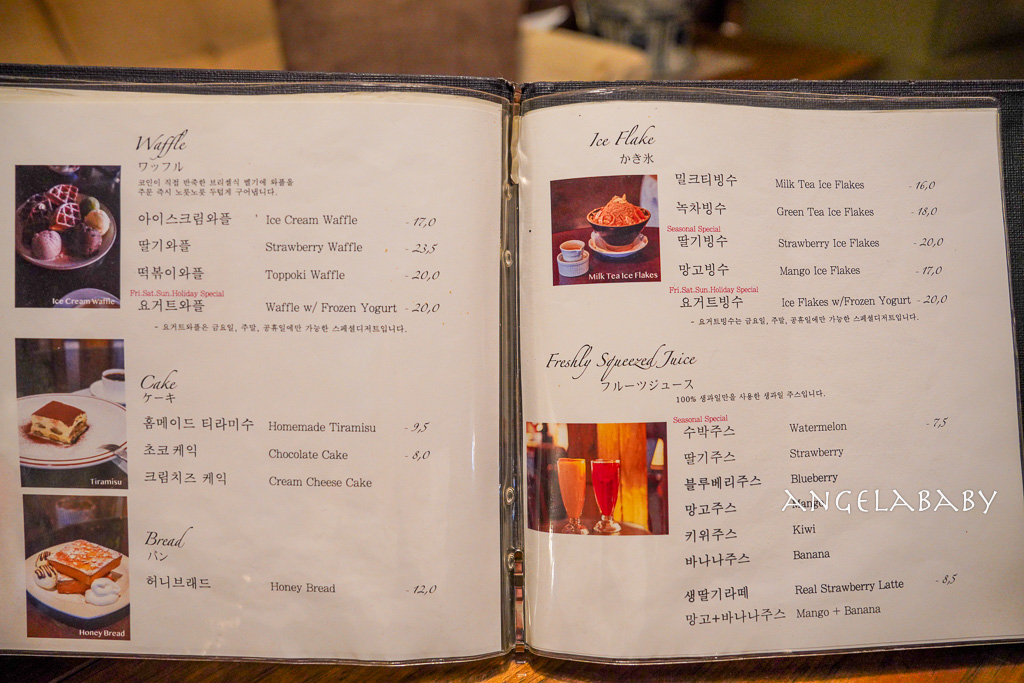 Waffle
ワッフル
코인이 직접 반죽한 브리젤식 벨기에 와플을
주문 즉시 노릇노릇 두텁게 구어냅니다.
아이스크림와플 Ice Cream Waffle - 17,0
딸기와플 Strawberry Waffle - 23,5
떡볶이와플 Toppoki Waffle - 20,0
Fri.Sat.Sun.Holiday Special
요거트와플 Waffle w/ Frozen Yogurt - 20,0
- 요거트와플은 금요일, 주말, 공휴일에만 가능한 스페셜디저트입니다.
Ice Cream Waffle
Cake
ケーキ
홈메이드 티라미수 Homemade Tiramisu - 9,5
초코케익 Chocolate Cake - 8,0
크림치즈 케익 Cream Cheese Cake
Tiramisu
Bread
パン
허니브래드 Honey Bread - 12,0
Honey Bread
Ice Flake
かき氷
밀크티빙수 Milk Tea Ice Flakes - 16,0
녹차빙수 Green Tea Ice Flakes - 18,0
Seasonal Special
딸기빙수 Strawberry Ice Flakes - 20,0
망고빙수 Mango Ice Flakes - 17,0
Fri.Sat.Sun.Holiday Special
요거트빙수 Ice Flakes w/Frozen Yogurt - 20,0
- 요거트빙수는 금요일, 주말, 공휴일에만 가능한 스페셜디저트입니다.
Milk Tea Ice Flakes
Freshly Squeezed Juice
フルーツジュース
100% 생과일만을 사용한 생과일 주스입니다.
Seasonal Special
수박주스 Watermelon - 7,5
딸기주스 Strawberry
블루베리주스 Blueberry
망고주스 Mango
ANGELABABY
키위주스 Kiwi
바나나주스 Banana
생딸기라떼 Real Strawberry Latte - 8,5
망고+바나나주스 Mango + Banana